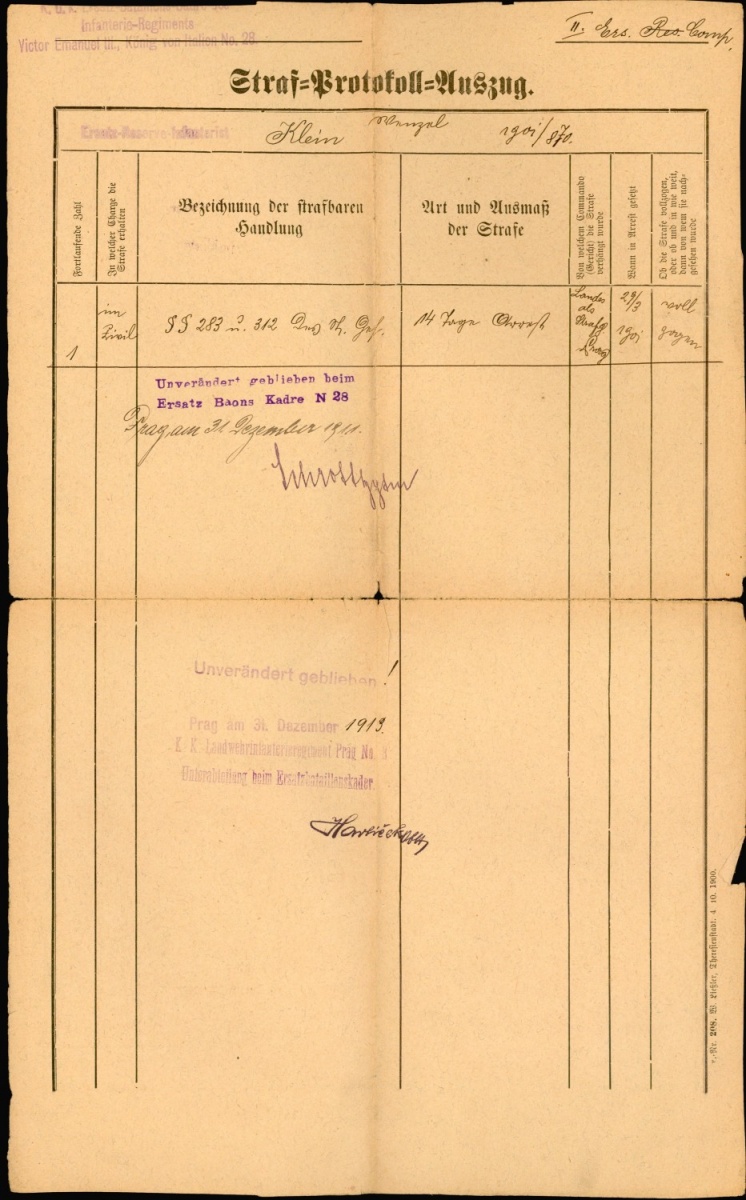 Infanterie-Regiments
Victor Emanuel III., König von Italien No. 28.
II. Ers. Res. Comp.
Straf-Protokoll-Auszug.
Ersatz-Reserve-Infanterist Klein Wenzel 1901/870.
Fortlaufende Zahl
In welcher Charge die
Strafe erhalten
Bezeichnung der strafbaren
Handlung
Art und Ausmaß
der Strafe
Von welchem Commando
(Gericht) die Strafe
verhängt wurde
Wann in Arrest gesetzt
Ob die Strafe vollzogen,
oder ob und in wie weit,
dann von wem sie nach-
gesehen wurde
1
im
Zivil
§§ 283 u. 312 des St. Ges.
14 Tage Arrest
Landes
als
Strafg
Prag
29/3
1901
voll
zogen
Unverändert geblieben beim
Ersatz Baons Kadre N 28
Prag, am 31 Dezember 1911.
Unverändert geblieben!
Prag am 31. Dezember 1913.
K. K. Landwehrinfanterieregiment Prag No. 8
Unterabteilung beim Ersatzbataillonskader.
208. W. Ließler, Theresienstadt. 4 10. 1900.